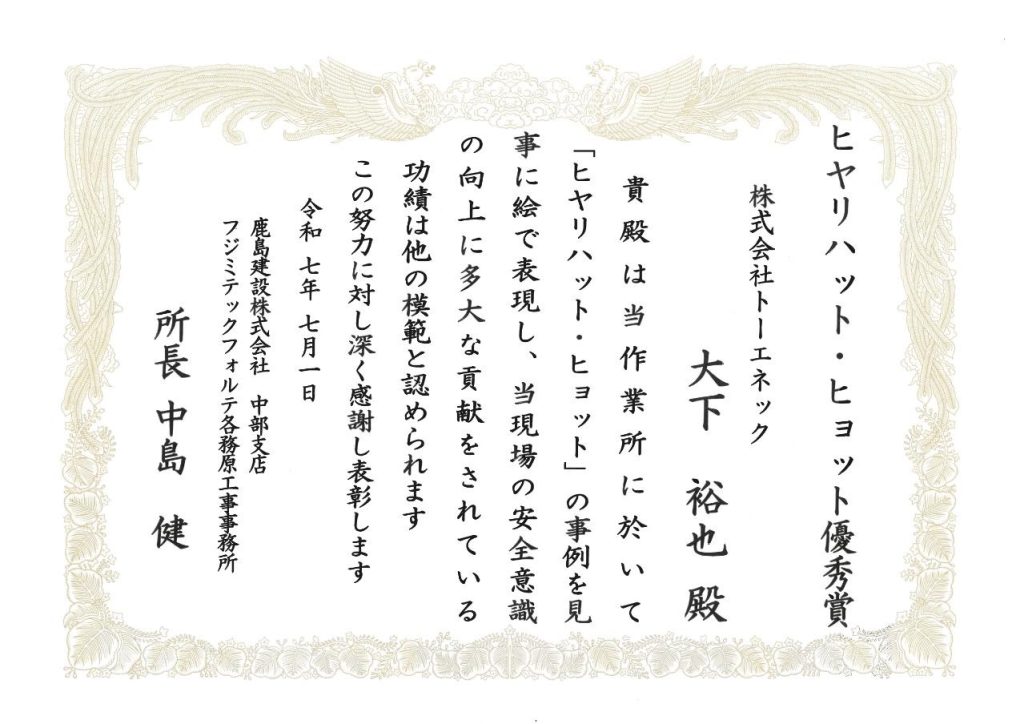 ヒヤリハット・ヒョット優秀賞
株式会社トーエネック
大下 裕也 殿
貴殿は当作業所に於いて
「ヒヤリハット・ヒョット」の事例を見
事に絵で表現し、当現場の安全意識
の向上に多大な貢献をされている
功績は他の模範と認められます
この努力に対し深く感謝し表彰します
令和 七年 七月一日
鹿島建設株式会社 中部支店
フジミテックフォルテ各務原工事事務所
所長 中島 健